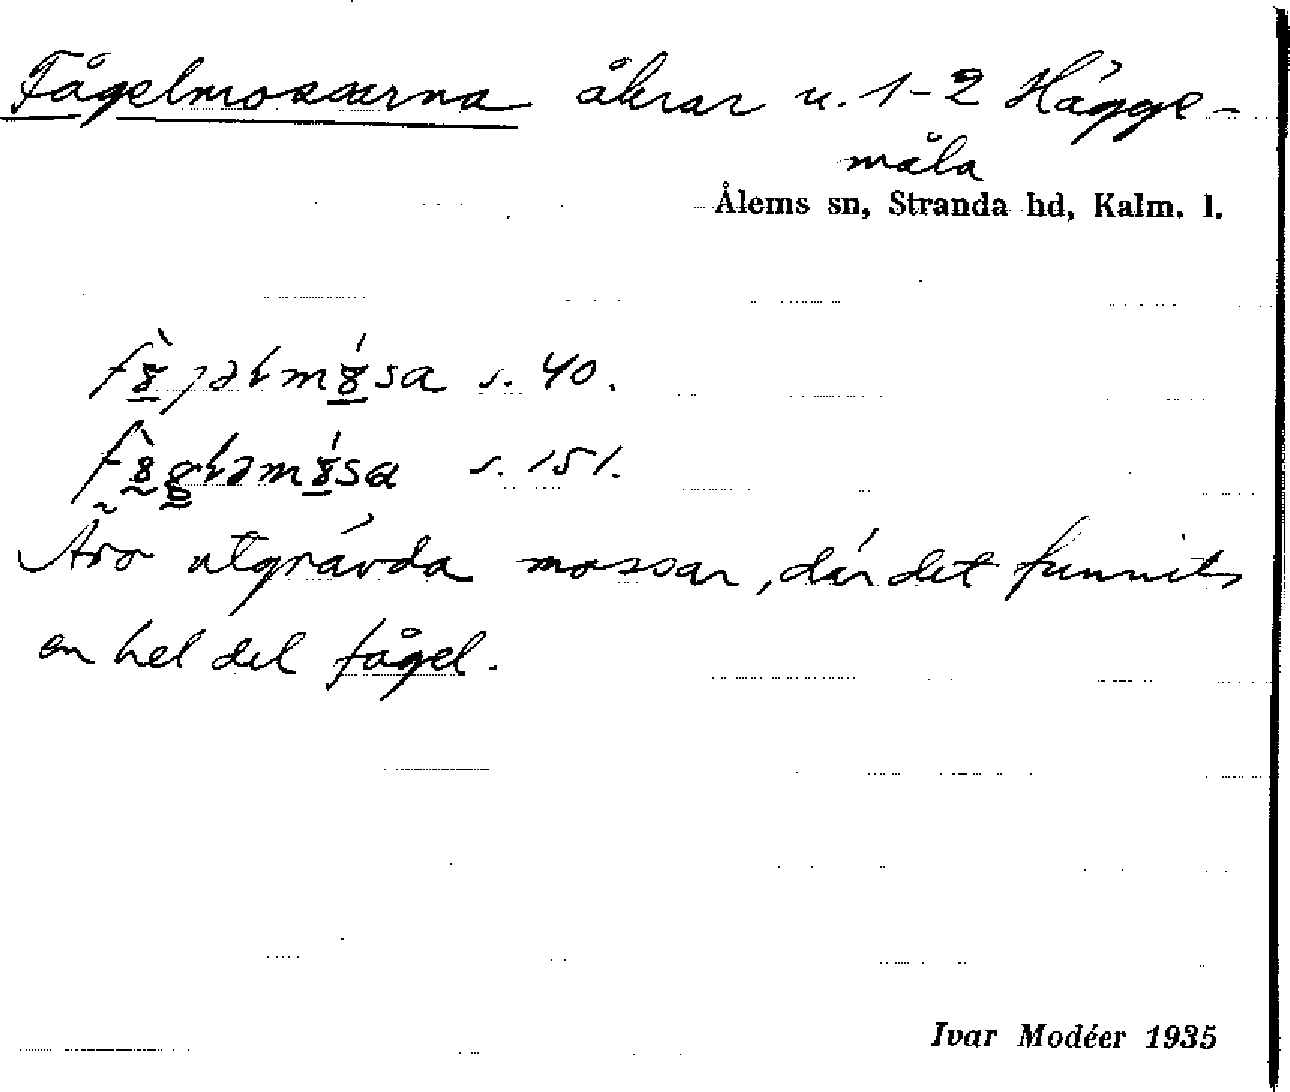 Fågelmossarna åkrar u. 1-2 Hägge-
måla
Ålems sn, Stranda hd, Kalm. l.
s. 40.
s. 151.
Äro utgrävda mossar, där det funnits
en hel del fågel.
Ivar Modéer 1935